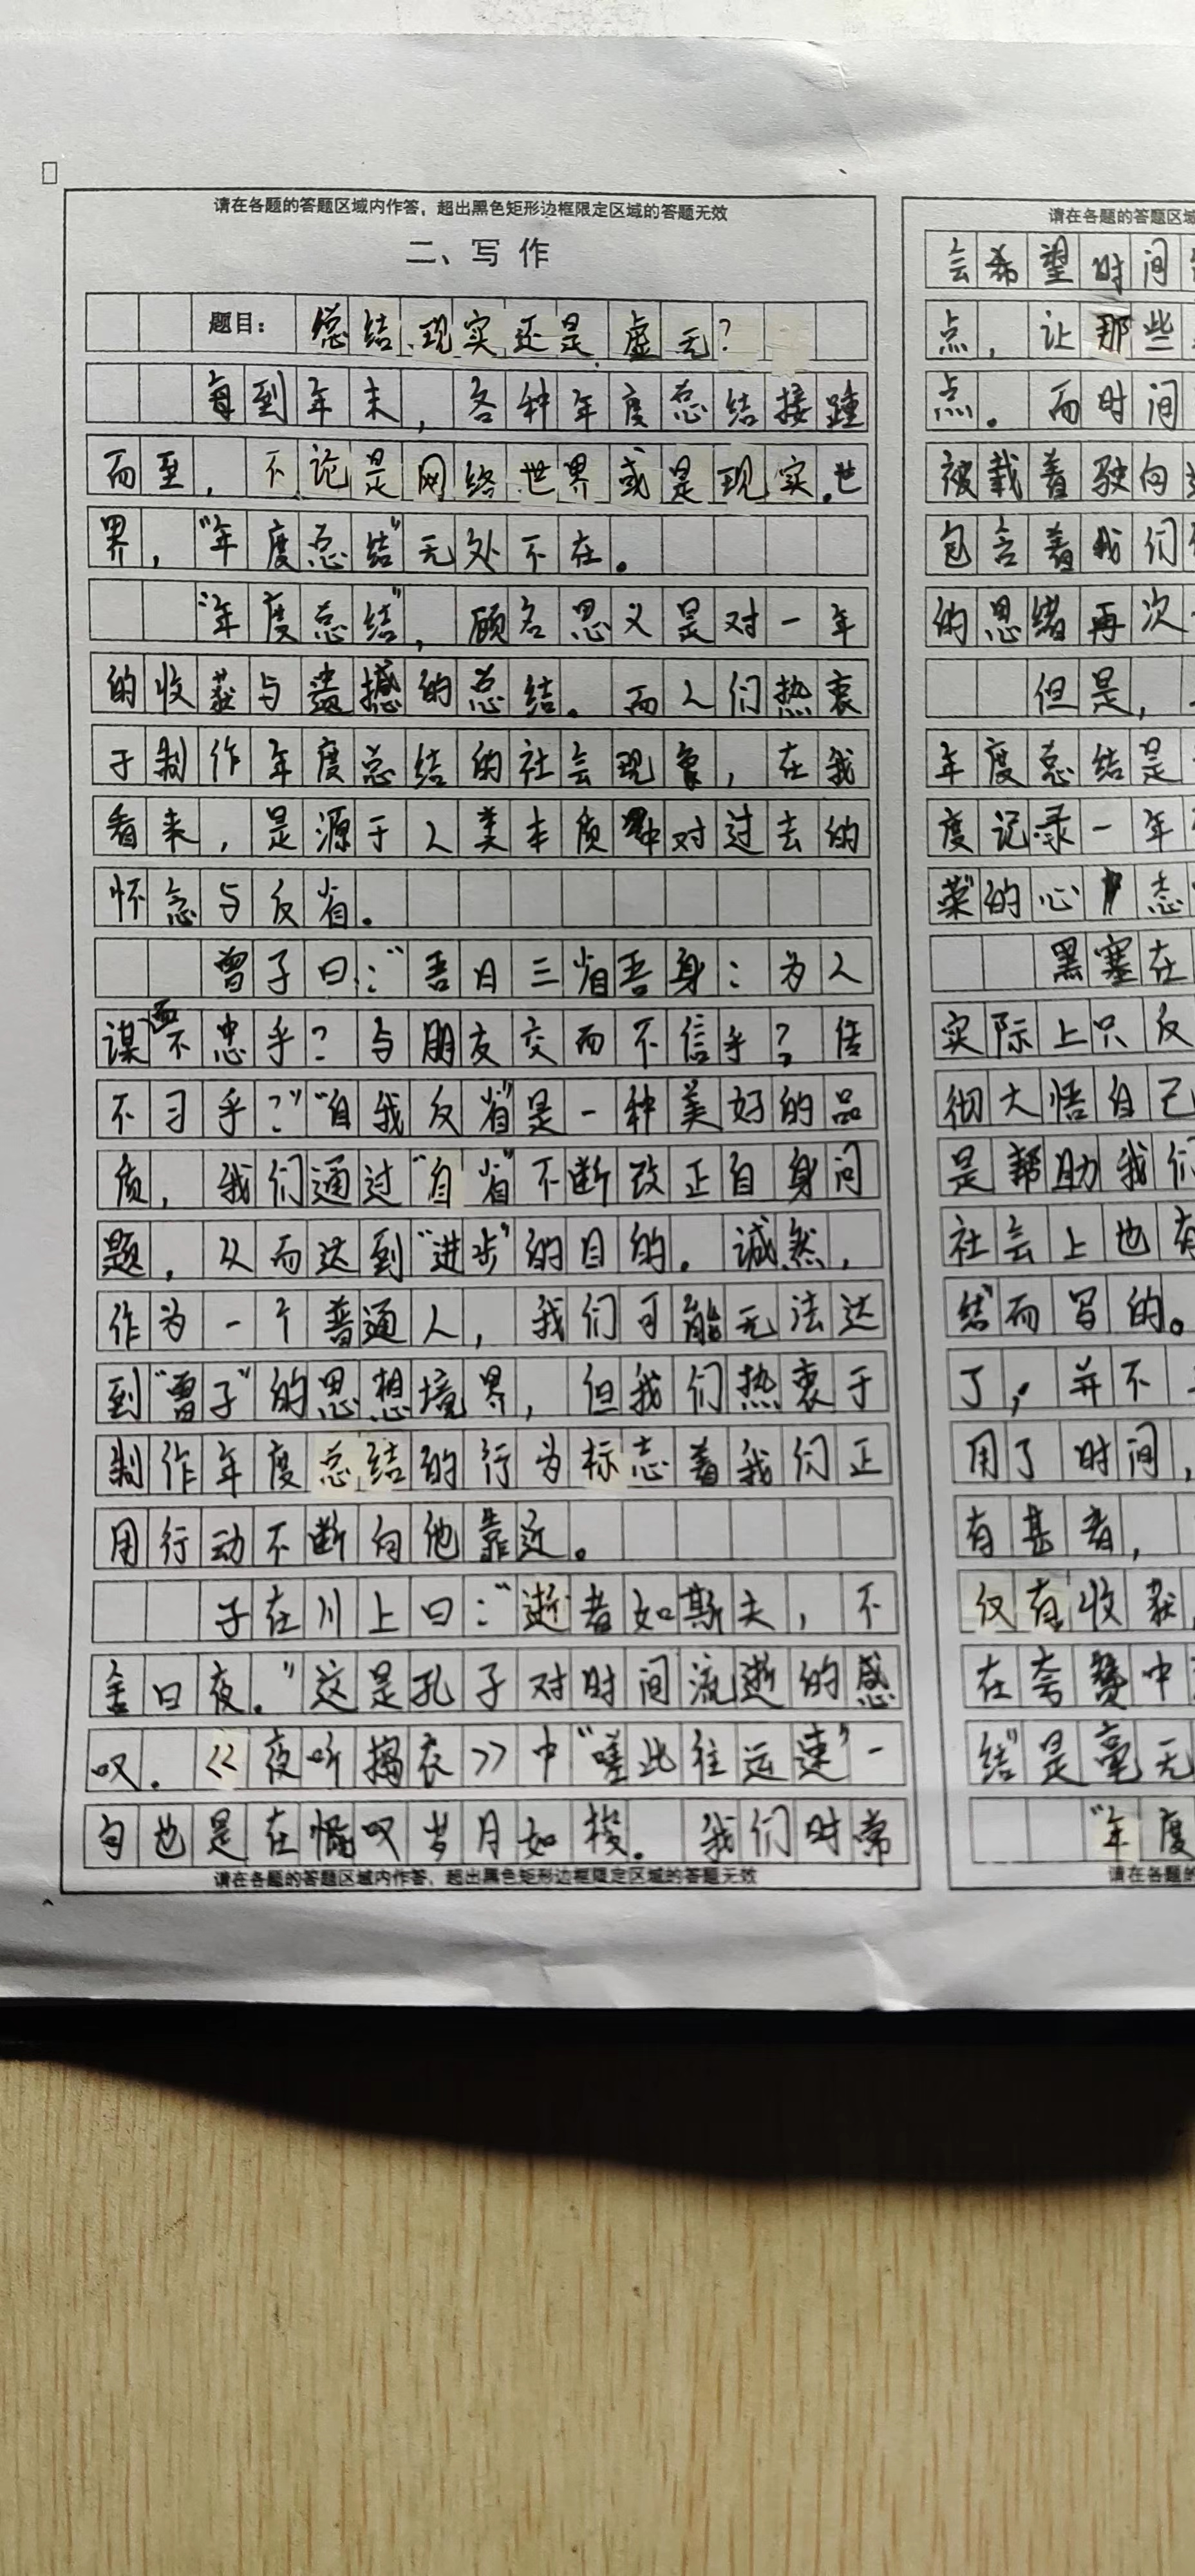 请在各题的答题区域内作答，超出黑色矩形边框限定区域的答题无效
二、写作
题目：总结现实还是虚无？
每到年末，各种年度总结接踵
而至，不论是网络世界或是现实世
界，“年度总结”无处不在。
“年度总结”，顾名思义是对一年
的收获与遗憾的总结。而人们热衷
于制作年度总结的社会现象，在我
看来，是源于人类本质中对过去的
怀念与反省。
曾子曰：“吾日三省吾身：为人
谋而不忠乎？与朋友交而不信乎？传
不习乎？”“自我反省”是一种美好的品
质，我们通过“自省”不断改正自身问
题，从而达到“进步”的目的。诚然，
作为一个普通人，我们可能无法达
到“曾子”的思想境界，但我们热衷于
制作年度总结的行为标志着我们正
用行动不断向他靠近。
子在川上曰：“逝者如斯夫，不
舍日夜。”这是孔子对时间流逝的感
叹。《夜听捣衣》中“嗟此往运速”一
句也是在慨叹岁月如梭。我们时常
请在各题的答题区域内作答，超出黑色矩形边框限定区域的答题无效
请在各题的答题区域
会希望时间
点，让那些
点。而时间
被载着驶向
包含着我们
的思绪再次
但是，
年度总结是
度记录一年
菜”的心态
黑塞在
实际上只反
彻大悟自己
是帮助我们
社会上也有
结”而写的。
了，并不
用了时间，
有甚者，
仅有收获
在夸赞中
结”是毫无
“年度
请在各题的